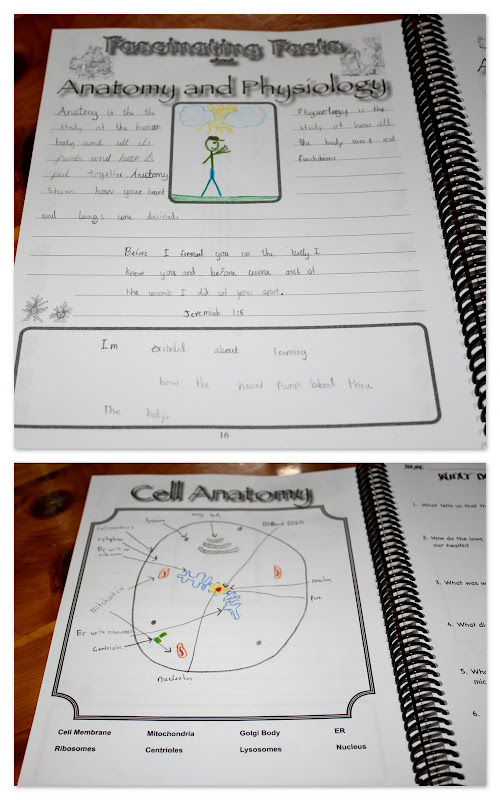 Fascinating Facts
about
Anatomy and Physiology
Anatomy is the the
study of the human
body and all its
parts and how is
put together Anatomy
shows how your heart
and lungs are desined.
Physiology is the
study of how all
the body work and
functions
Before I formed you in the belly I
knew you and before came out of
the womb I did set you apart.
Jeremiah 1:5
Im exited about learning
how the heart pump blood thru
The body
16
Cell Anatomy
Golgi body
Lysosome
Cell membrane
Cytoplasm
ribosome
Mitochondria
Er with ribosomes
Centrioles
Nucleolus
Nucleus
Pore
Cell Membrane Mitochondria Golgi Body ER
Ribosomes Centrioles Lysosomes Nucleus
NAME
WHAT D
1. What tells us that th
2. How do the laws
our health?
3. What was w
4. What di
5. Who
mic
6.